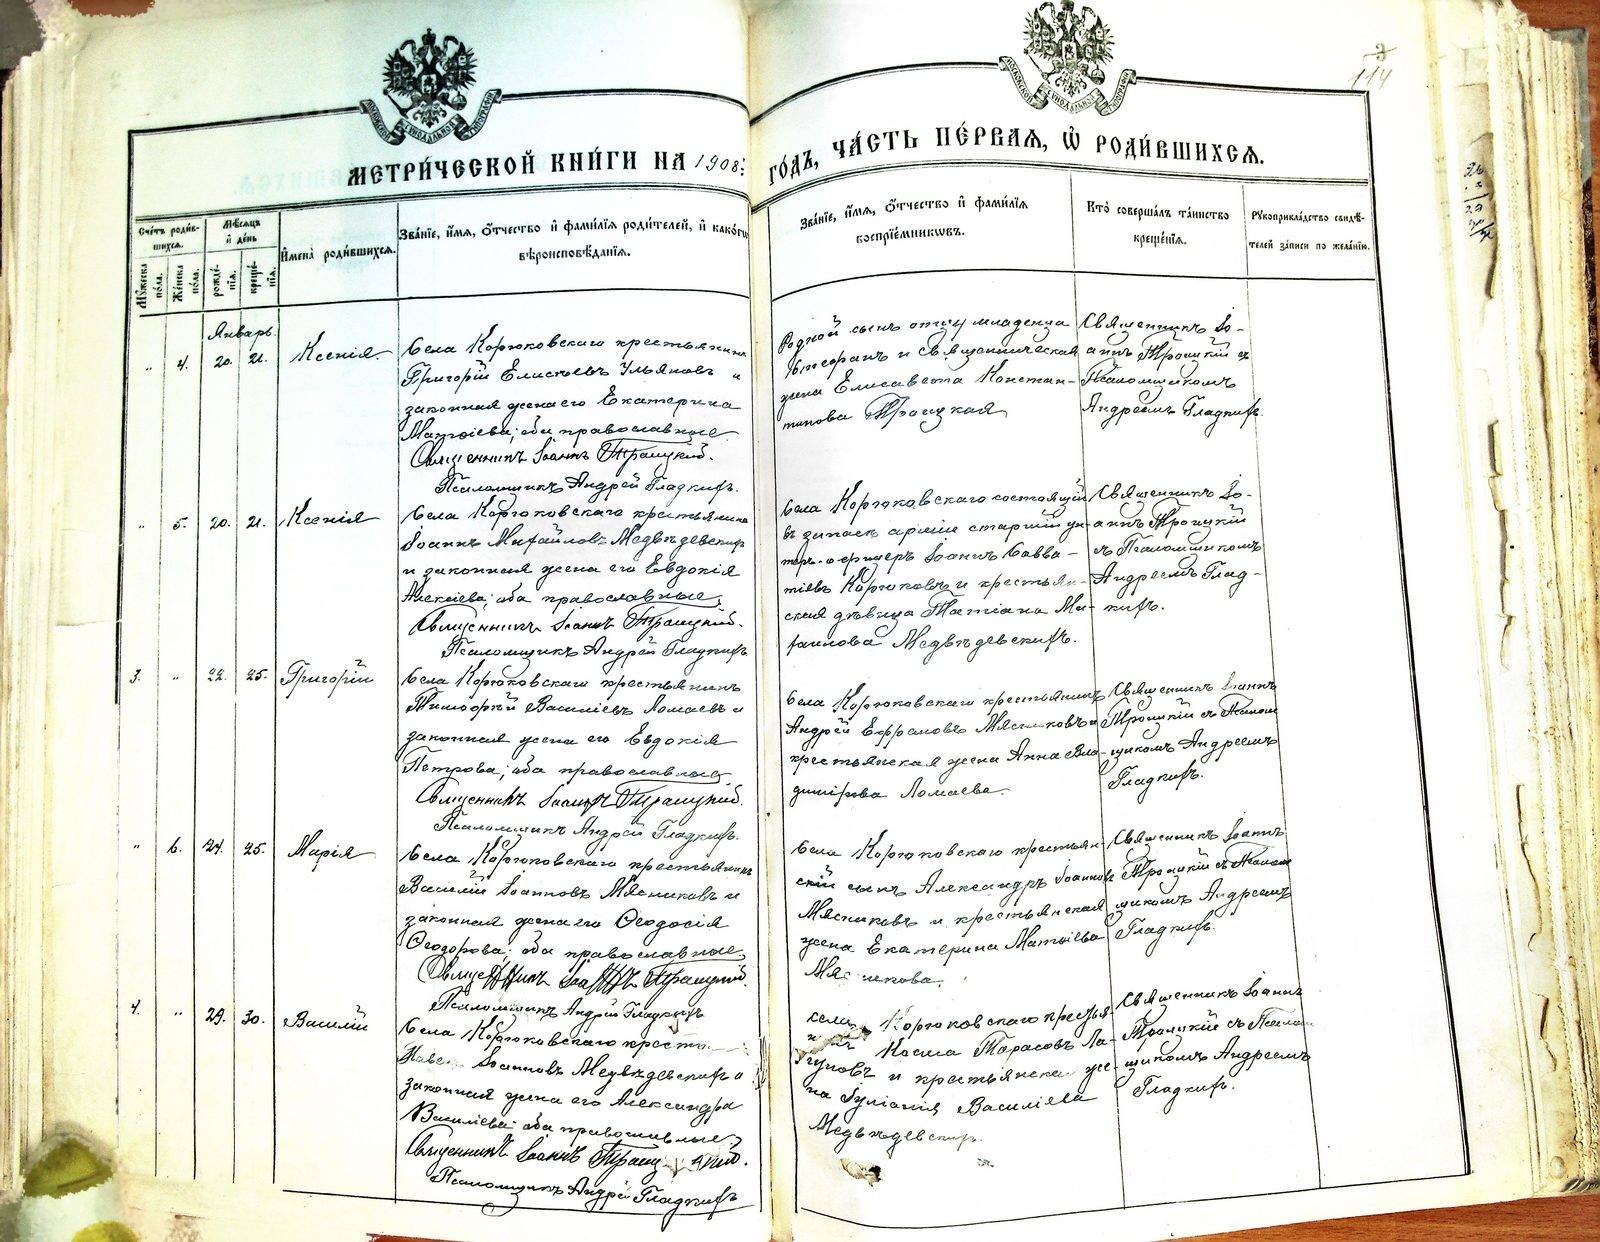 114
МЕТРИ́ЧЕСКОЙ КНИ́ГИ НА 1908:
ГО́ДЪ, ЧА́СТЬ ПЕ́РВАЯ, Ѡ РОДИ́ВШИХСѦ.
Сче́тъ роди́в-
шихся.
Мꙋжеска по́ла.
Же́нска по́ла.
Мѣ́сяцъ
и҆ де́нь
рожде́-
нїя.
креще́-
нїя.
И҆мена̀ роди́вшихся.
Зва́нїе, и҆́мя, ѻ҆́тчество и҆ фами́лїя роди́телей, и҆ како́гѡ
вѣроисповѣ́данїя.
Зва́нїе, и҆́мя, ѻ҆́тчество и҆ фами́лїя
воспрїе́мникѡвъ.
Кто̀ соверша́лъ та́инство
креще́нїя.
Рꙋкоприкла́дство свидѣ́-
телей за́писи по жела́нїю.
Январь.
„ 4. 20. 21. Ксенія
Села Корюковскаго крестьянинъ
Григорій Елисѣевъ Ульяновъ и
законная жена его Екатерина
Матѳіева; оба православные.
Священникъ Іоаннъ Троицкій.
Псаломщикъ Андрей Гладкихъ.
Родной сынъ отцу младенца
и священническая
жена Елисавета Констан-
тинова Троицкая
Священникъ Іо-
аннъ Троицкій съ
Псаломщикомъ
Андреемъ Гладкихъ.
„ 5. 20. 21. Ксенія
Села Корюковскаго крестьянинъ
Іоаннъ Михайловъ Медвѣдевскихъ
и законная жена его Евдокія
Алексіева; оба православные.
Священникъ Іоаннъ Троицкій.
Псаломщикъ Андрей Гладкихъ
Села Корюковскаго состоящій
въ запасѣ арміи старшій ун-
теръ-офицеръ Іоаннъ Савва-
тіевъ Корюковъ и крестьян-
ская дѣвица Татіана Ми-
хаилова Медвѣдевскихъ.
Священникъ Іо-
аннъ Троицкій
съ Псаломщикомъ
Андреемъ Глад-
кихъ.
3. „ 22. 25. Григорій
Села Корюковскаго крестьянинъ
Тимоѳей Василіевъ Ломаевъ и
законная жена его Евдокія
Петрова; оба православные.
Священникъ Іоаннъ Троицкій.
Псаломщикъ Андрей Гладкихъ.
Села Корюковскаго крестьянинъ
Андрей Ефремовъ Мясниковъ и
крестьянская жена Анна Вла-
димірова Ломаева.
Священникъ Іоаннъ
Троицкій съ Псалом
щикомъ Андреемъ
Гладкихъ.
„ 6. 24. 25. Марія
Села Корюковскаго крестьянинъ
Василій Іоанновъ Мясниковъ и
законная жена его Ѳеодосія
Ѳеодорова; оба православные.
Священникъ Іоаннъ Троицкій.
Псаломщикъ Андрей Гладкихъ
Села Корюковскаго крестьян-
скій сынъ Александръ Іоанновъ
Мясниковъ и крестьянская
жена Екатерина Матѳіева
Мясникова.
Священникъ Іоаннъ
Троицкій съ Псалом
щикомъ Андреемъ
Гладкихъ.
4. „ 29. 30. Василій
Села Корюковскаго
Іоанновъ Медвѣдевскихъ и
законная жена его Александра
Василіева; оба православные.
Священникъ Іоаннъ Троицкій.
Псаломщикъ Андрей Гладкихъ
села Корюковскаго крестья-
Косма Тарасовъ Ла-
гуновъ и крестьянская же-
на Іуліанія Василіева
Медвѣдевскихъ.
Священникъ Іоаннъ
Троицкій съ Псалом
щикомъ Андреемъ
Гладкихъ.